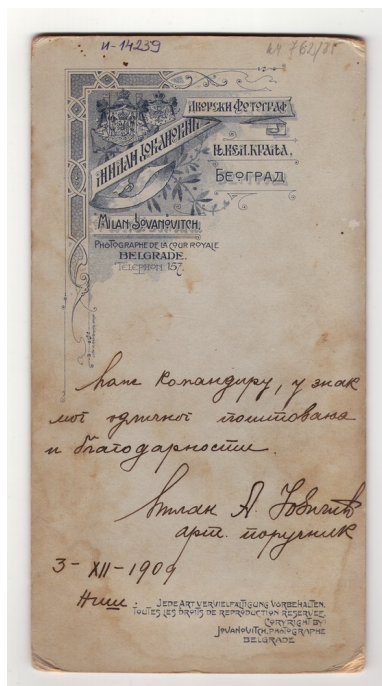 и-14239
Милан Јовановић
Дворски Фотограф
Њ. Вел. Краља,
Београд
Milan Jovanovitch,
Photographe de la Cour Royale
Belgrade.
Telephon. 157.
командиру, у знак
мог одличног поштовања
и благодарности.
Милан А.
арт. поручник
3-XII-1909
Ниш.
Jede Art Vervielfältigung vorbehalten.
Toutes les droits de reproduction reservée.
Copyright by
Jovanovitch, Photographe
Belgrade